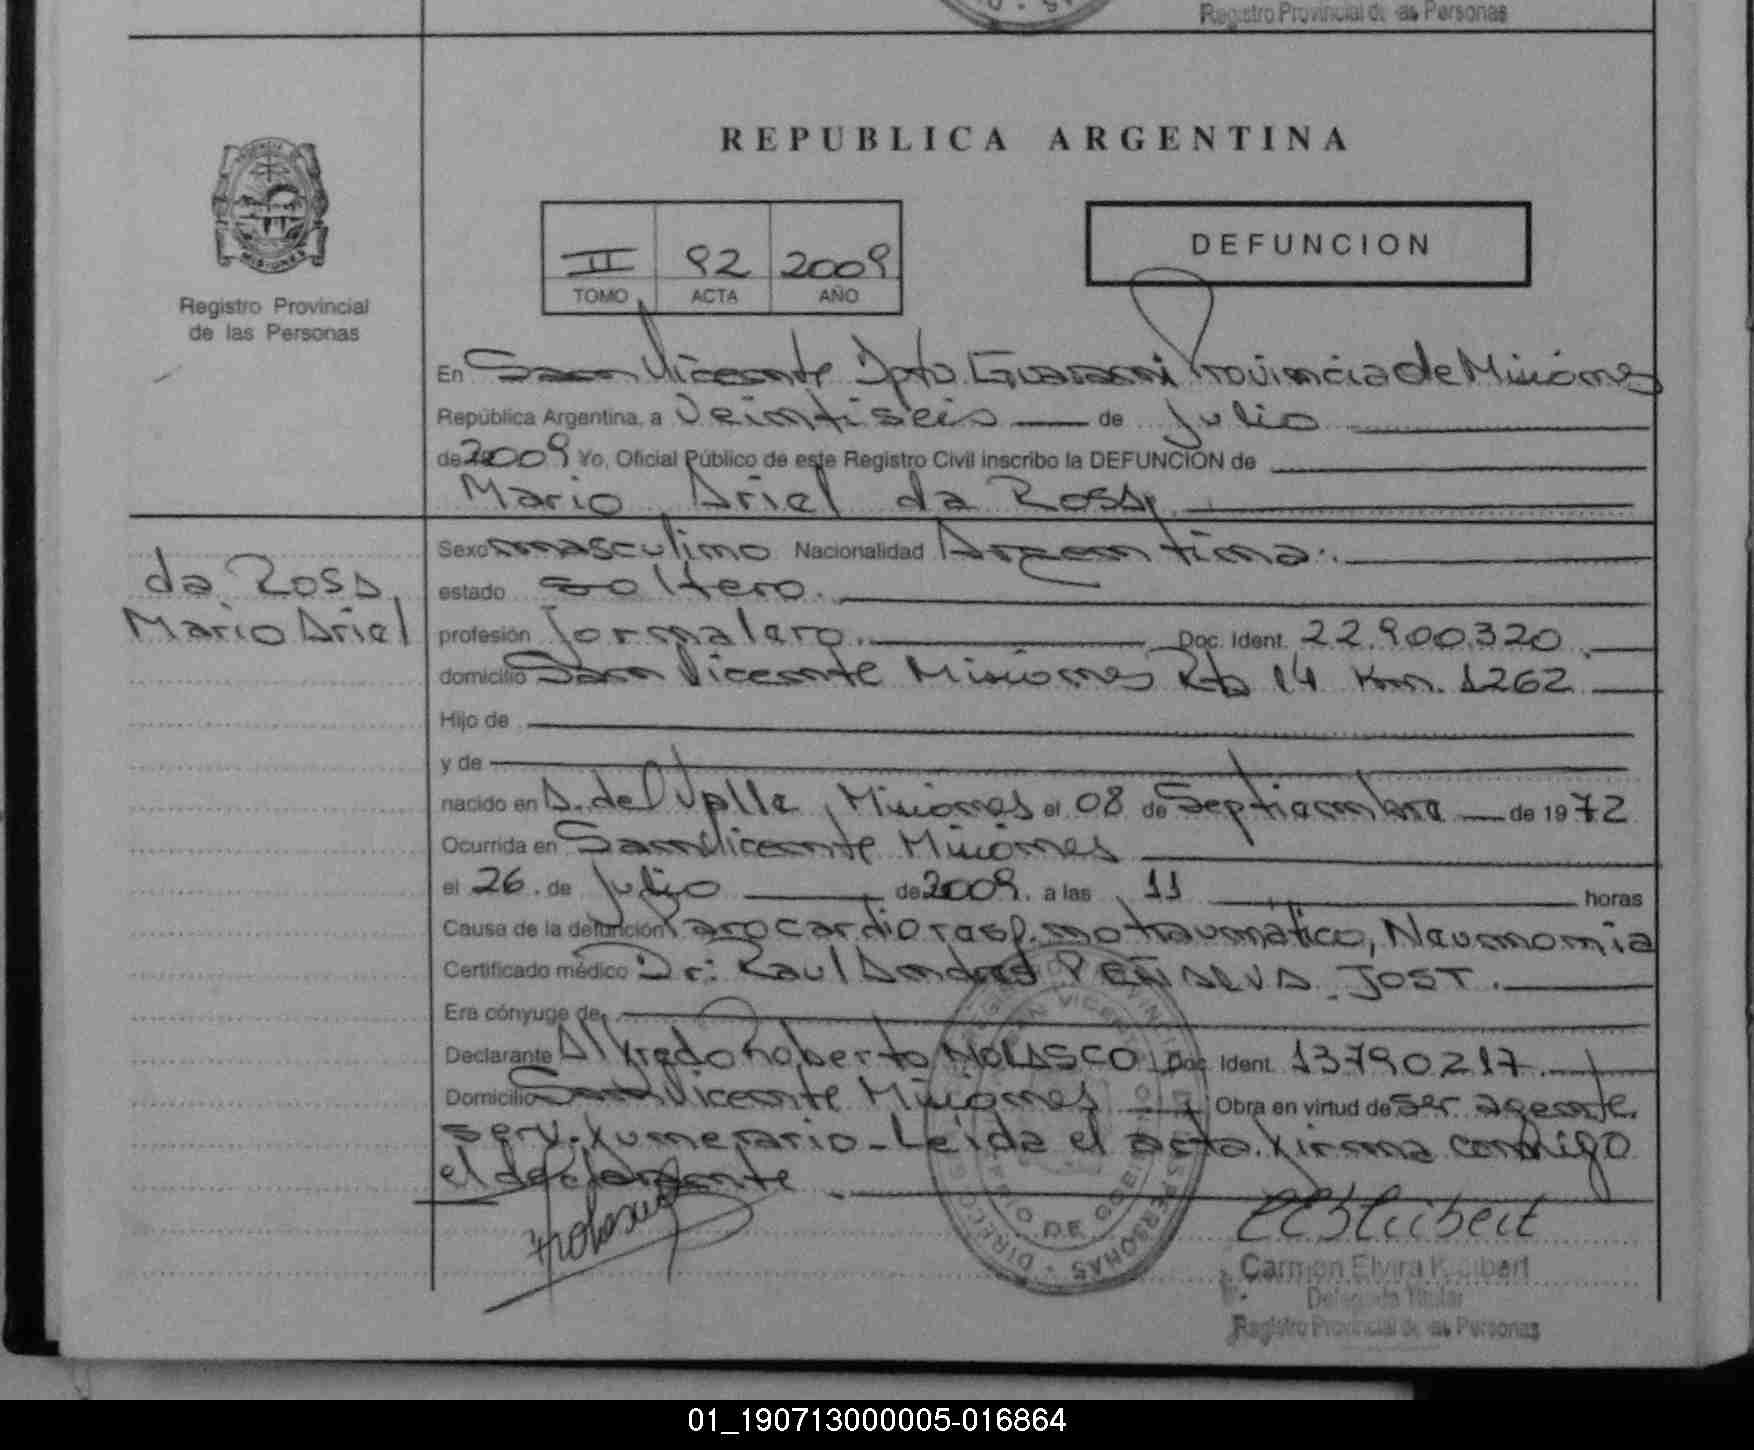 Registro Provincial de las Personas
REPUBLICA ARGENTINA
DEFUNCION
II 92 2009
TOMO ACTA AÑO
MISIONES
Registro Provincial
de las Personas
En San Vicente Dpto Guarani Provincia de Misiones
República Argentina, a Veintiseis de julio
de 2009 Yo, Oficial Público de este Registro Civil inscribo la DEFUNCION de
Mario Ariel da Rosa
da Rosa
Mario Ariel
Sexo masculino Nacionalidad Argentina
estado soltero.
profesión Jornalero. Doc. Ident. 22.900.320
domicilio San Vicente Misiones Rta 14 Km. 1262
Hijo de
y de
nacido en A. del Valle, Misiones el 08 de Septiembre de 1972
Ocurrida en San Vicente Misiones
el 26 de julio de 2009. a las 11 horas
Cause de la defunción Paro cardio resp. no traumatico, Neumonia
Certificado médico Dr: Raul Andres PEÑALVA JOST.
Era cónyuge de
Declarante Alfredo Roberto NOLASCO Doc. Ident. 13790217.
Domicilio San Vicente Misiones Obra en virtud de ser agente
serv. fumerario - Leida el acta firma conmigo
el declarante
Carmen Elvira
Delegada Titular
Registro Provincial de las Personas
01_190713000005-016864